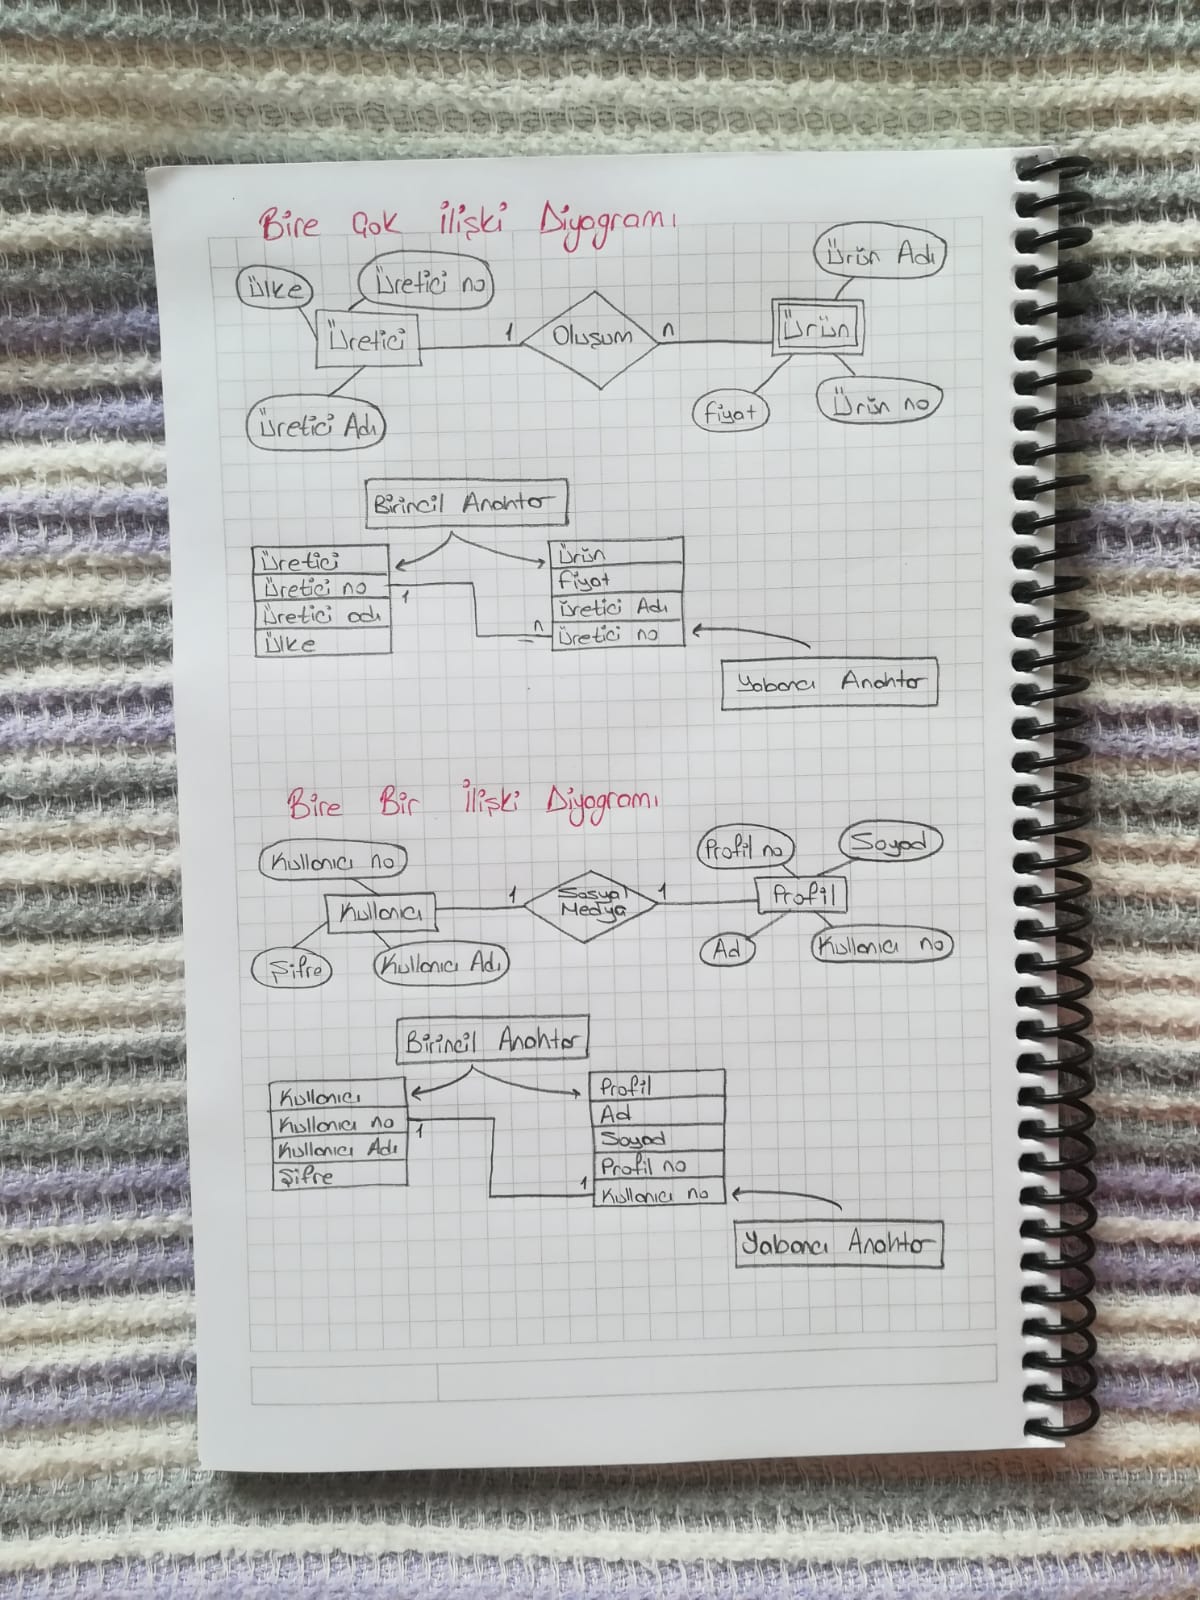 Bire Çok İlişki Diyagramı
Ülke
Üretici no
Ürün Adı
Üretici
1
Oluşum
n
Ürün
Üretici Adı
Fiyat
Ürün no
Birincil Anahtar
Üretici
Üretici no
Üretici adı
Ülke
1
n
Ürün
Fiyat
Üretici Adı
Üretici no
Yabancı Anahtar
Bire Bir İlişki Diyagramı
Kullanıcı no
Profil no
Soyad
Kullanıcı
1
Sosyal
Medya
1
Profil
Şifre
Kullanıcı Adı
Ad
Kullanıcı no
Birincil Anahtar
Kullanıcı
Kullanıcı no
Kullanıcı Adı
Şifre
1
1
Profil
Ad
Soyad
Profil no
Kullanıcı no
Yabancı Anahtar